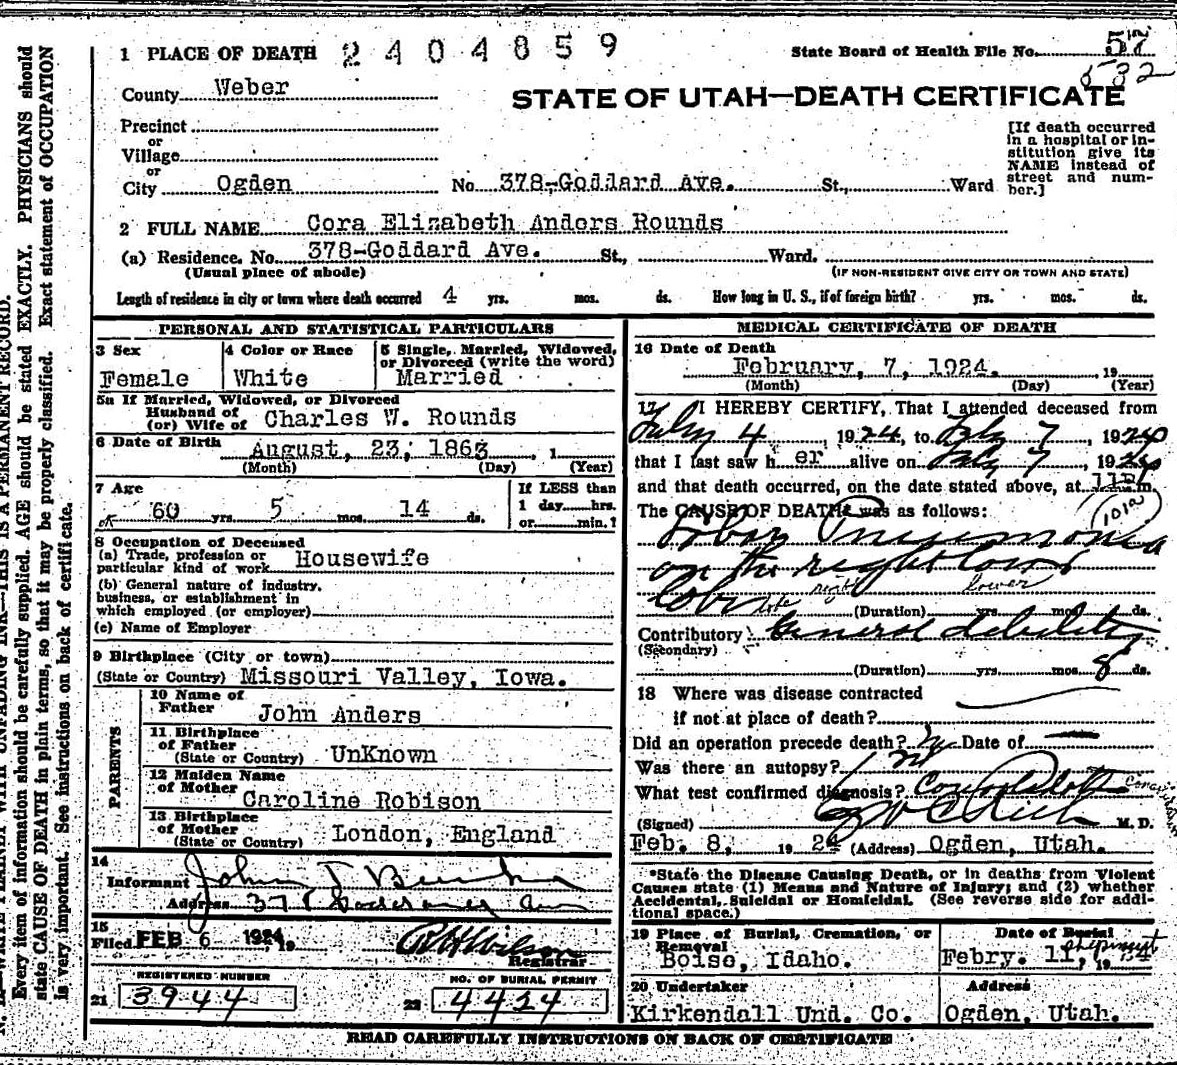 1 PLACE OF DEATH 2404859
State Board of Health File No. 57
532
County Weber
STATE OF UTAH—DEATH CERTIFICATE
Precinct
or
Village
or
City Ogden No 378-Goddard Ave. St., Ward
[If death occurred
in a hospital or in-
stitution give its
NAME instead of
street and num-
ber.]
2 FULL NAME Cora Elizabeth Anders Rounds
(a) Residence. No. 378-Goddard Ave. St., Ward.
(Usual place of abode) (IF NON-RESIDENT GIVE CITY OR TOWN AND STATE)
Length of residence in city or town where death occurred 4 yrs. mos. ds. How long in U. S., if of foreign birth? yrs. mos. ds.
PERSONAL AND STATISTICAL PARTICULARS
3 Sex
Female
4 Color or Race
White
5 Single, Married, Widowed,
or Divorced (write the word)
Married
5a If Married, Widowed, or Divorced
Husband of
(or) Wife of Charles W. Rounds
6 Date of Birth August, 23, 1863, 1
(Month) (Day) (Year)
7 Age
60 yrs. 5 mos. 14 ds.
If LESS than
1 day hrs.
or min.?
8 Occupation of Deceased
(a) Trade, profession or
particular kind of work Housewife
(b) General nature of industry.
business, or establishment in
which employed (or employer)
(c) Name of Employer
9 Birthplace (City or town)
(State or Country) Missouri Valley, Iowa.
PARENTS
10 Name of
Father John Anders
11 Birthplace
of Father
(State or Country) UnKnown
12 Maiden Name
of Mother Caroline Robison
13 Birthplace
of Mother
(State or Country) London, England
14
Informant John T
Address 378 Goddard Ave
15
Filed FEB 6 1924, 19
Registrar
REGISTERED NUMBER
21 3944
NO. OF BURIAL PERMIT
22 4424
MEDICAL CERTIFICATE OF DEATH
16 Date of Death
February, 7, 1924. , 19
(Month) (Day) (Year)
17 I HEREBY CERTIFY, That I attended deceased from
Feby 4, 1924, to Feby 7, 1924
that I last saw her alive on Feby 7, 1924
and that death occurred, on the date stated above, at m.
The CAUSE OF DEATH* was as follows:
101a
Lobar Pneumonia
on the right lower
lobe
lobe right lower
(Duration) yrs. mos. ds.
Contributory General debility
(Secondary)
(Duration) yrs. mos. 8 ds.
18 Where was disease contracted
if not at place of death?
Did an operation precede death? No Date of
Was there an autopsy? no
What test confirmed diagnosis?
(Signed) M. D.
Feb. 8, 1924 (Address) Ogden, Utah.
*State the Disease Causing Death, or in deaths from Violent
Causes state (1) Means and Nature of Injury; and (2) whether
Accidental, Suicidal or Homicidal. (See reverse side for addi-
tional space.)
19 Place of Burial, Cremation, or
Removal
Boise, Idaho.
Date of Burial
shipment
Febry. 11, 1924
20 Undertaker
Kirkendall Und. Co.
Address
Ogden, Utah.
READ CAREFULLY INSTRUCTIONS ON BACK OF CERTIFICATE
WRITE PLAINLY WITH UNFADING INK—THIS IS A PERMANENT RECORD.
Every item of information should be carefully supplied. AGE should be stated EXACTLY. PHYSICIANS should
state CAUSE OF DEATH in plain terms, so that it may be properly classified. Exact statement of OCCUPATION
is very important. See instructions on back of certificate.